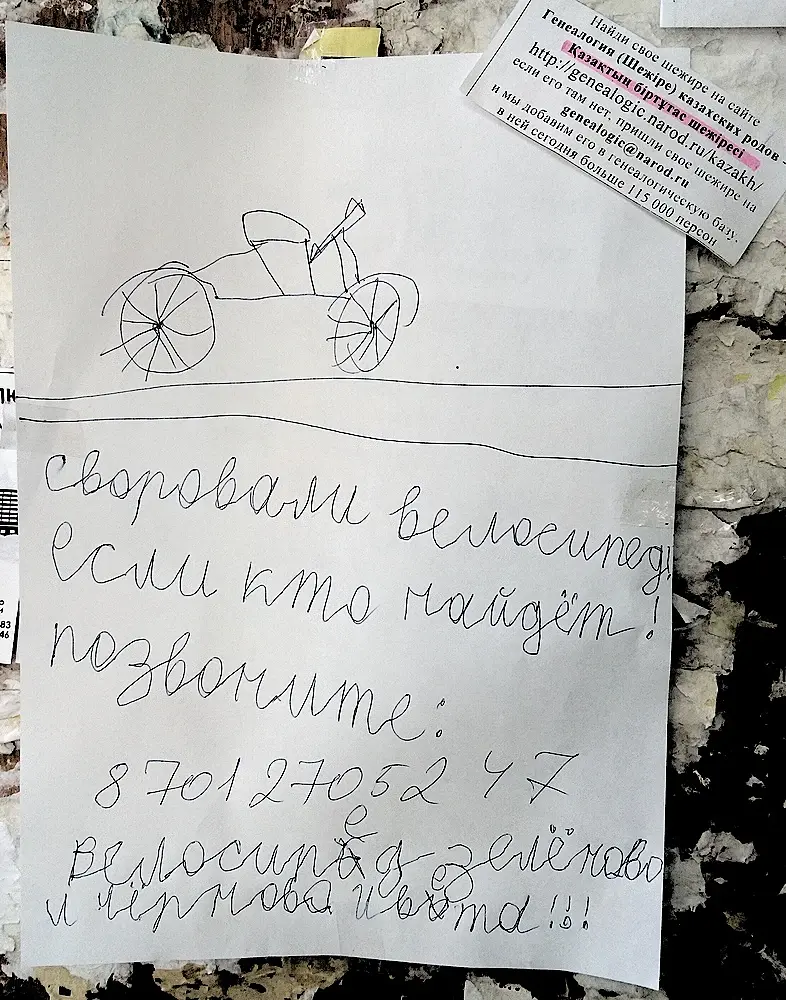 Найди свое шежире на сайте
Генеалогия (Шежіре) казахских родов -
Казақтың біртұтас шежіресі
http://genealogic.narod.ru/kazakh/
если его там нет, пришли свое шежире на
genealogic@narod.ru
и мы добавим его в генеалогическую базу.
в ней сегодня больше 115 000 персон
своровали велосипед!
если кто найдёт!
позвоните:
87012705247
велосипед зелёново
и чёрнова цвета!!!
83
46